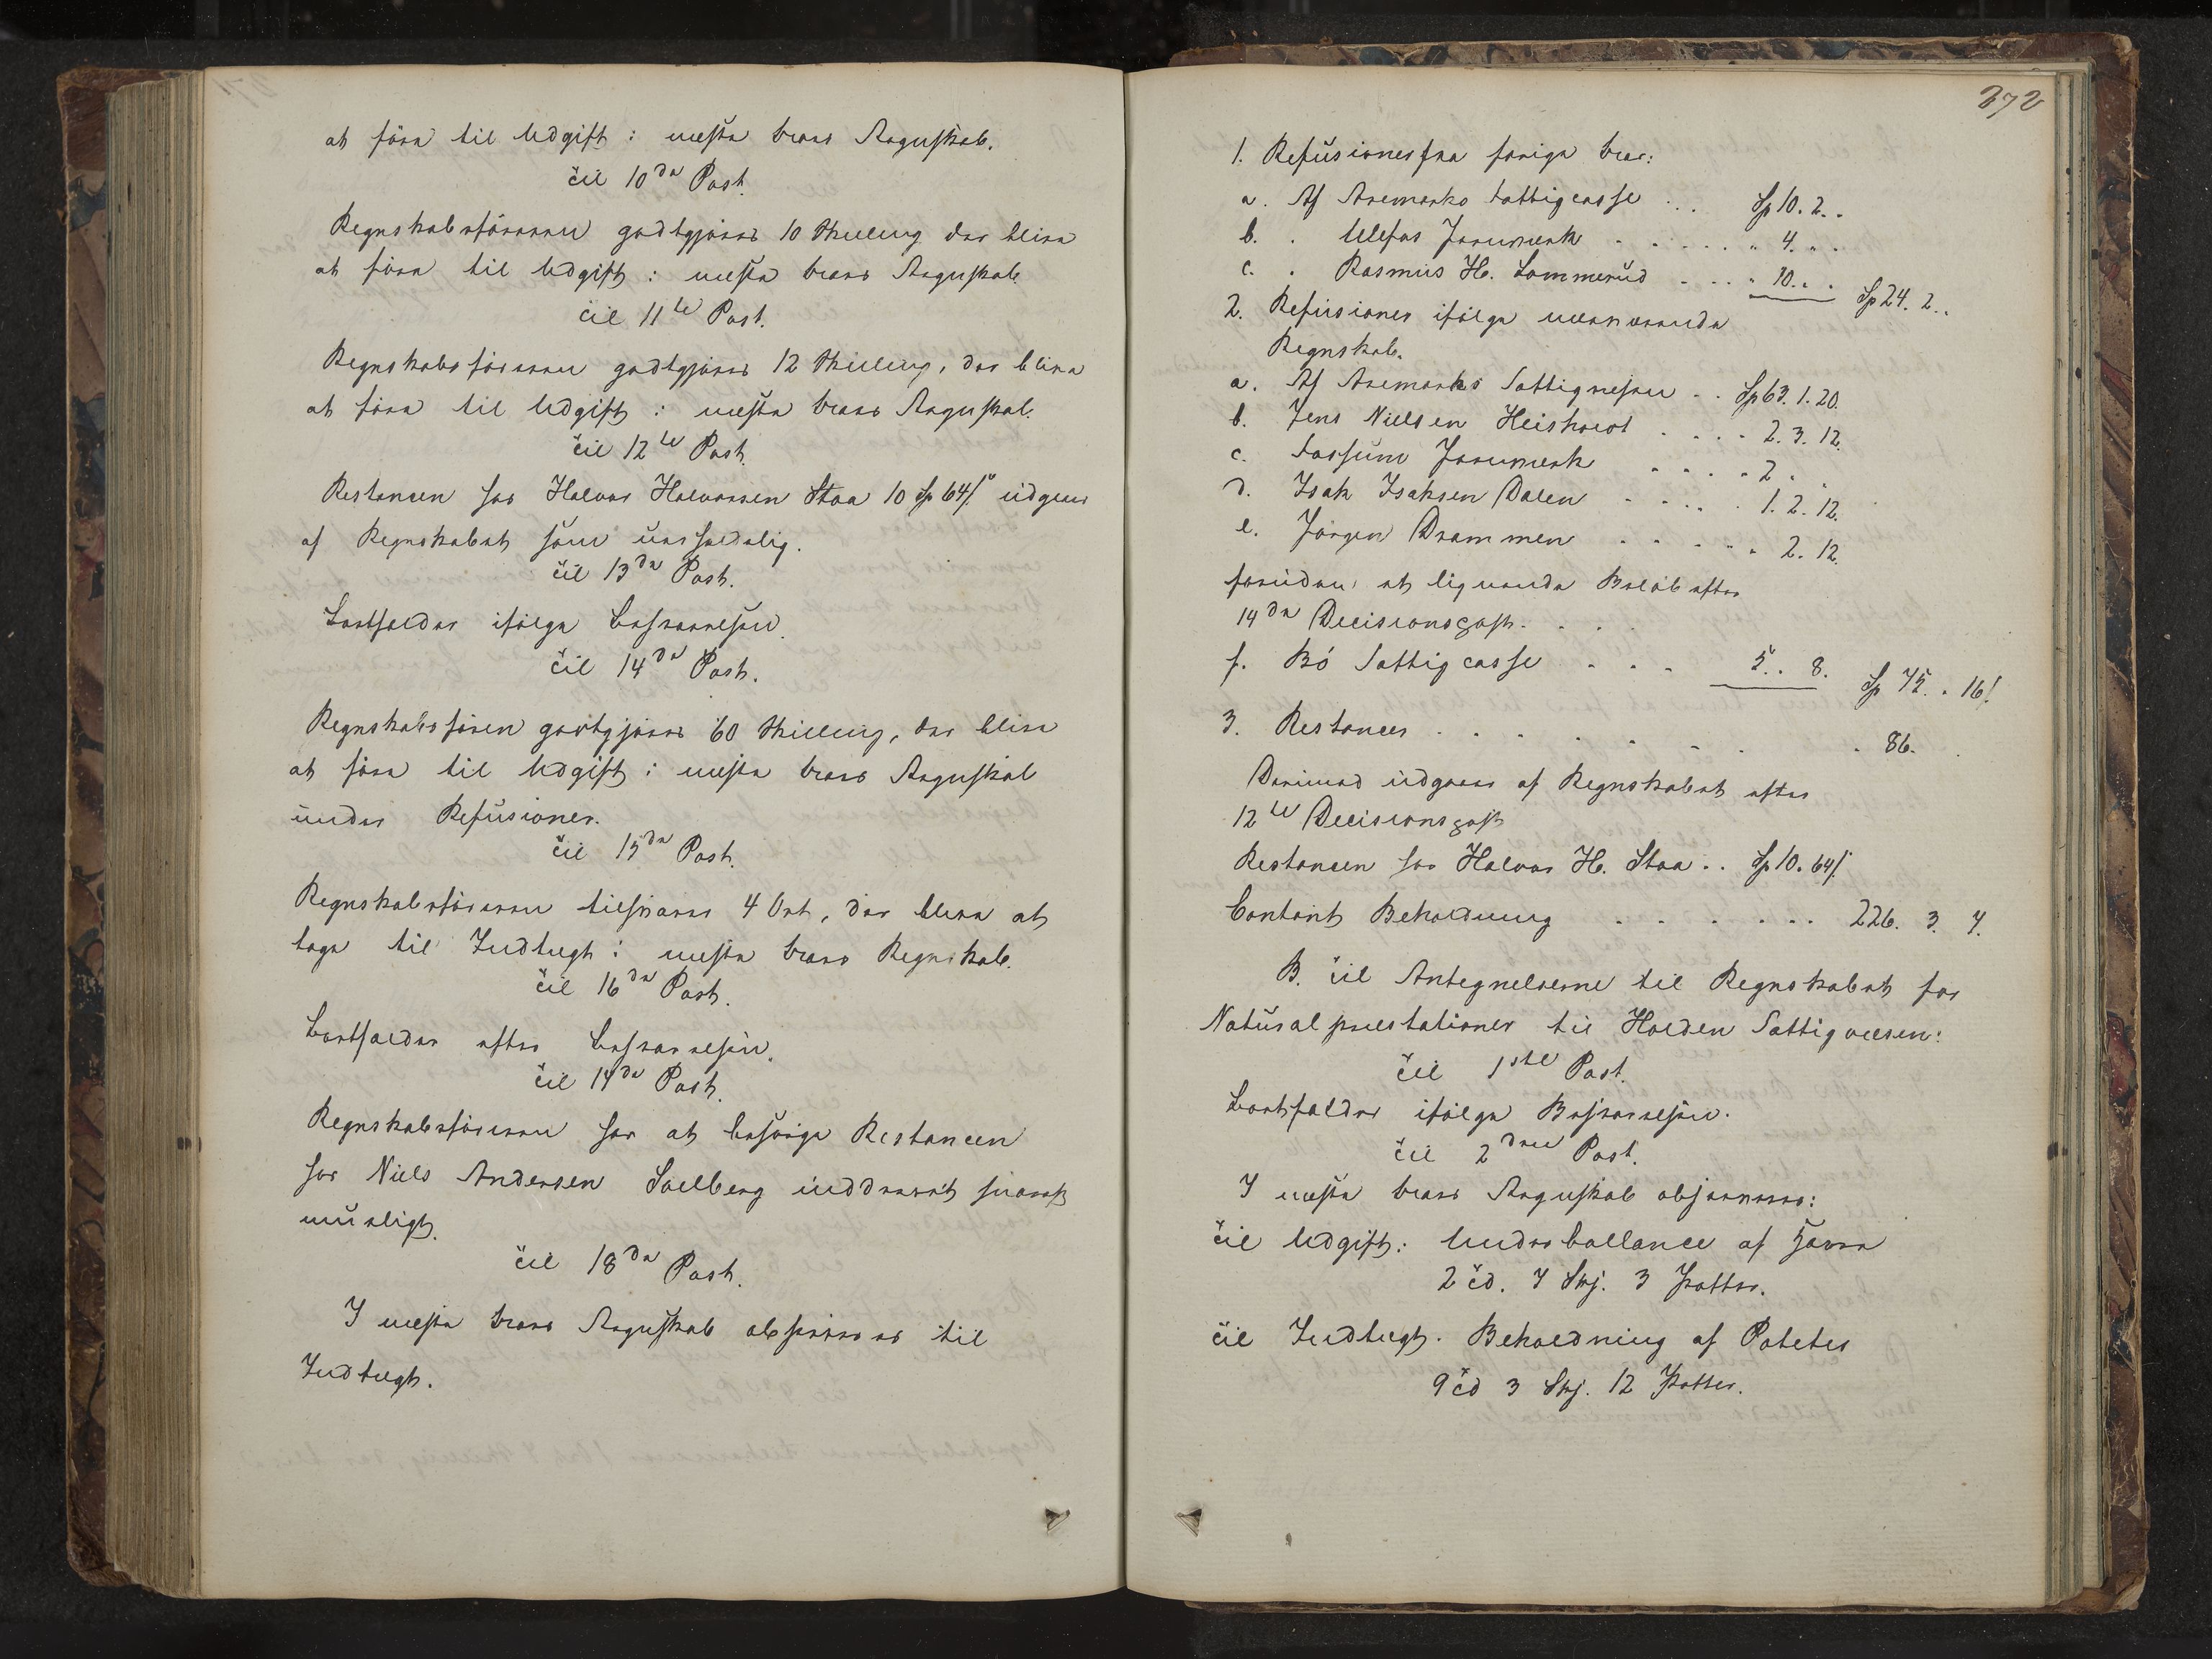 at føre til Udgift i næste Aars Regnskab.
Til 10de Post.
Regnskabsføreren godtgjøres 10 Skilling der blive
at føre til Udgift i næste Aars Regnskab.
Til 11te Post.
Regnskabsføreren godtgjøres 12 Skilling, der blive
at føre til Udgift i næste Aars Regnskab.
Til 12te Post.
Restancen hos Halvor Halvorsen Stoa 10 Sp 64 ß udgaar
af Regnskabet som uerholdelig.
Til 13de Post.
Bortfalder ifølge Besvarelsen.
Til 14de Post.
Regnskabsføren godtgjøres 60 Skilling, der blive
at føre til Udgift i næste Aars Regnskab
under Refusioner.
Til 15de Post.
Regnskabsføreren tilsvarer 4 Ort, der blive at
tage til Indtægt i næste Aars Regnskab.
Til 16de Post.
Bortfalder efter Besvarelsen.
Til 17de Post.
Regnskabsføreren har at besørge Restancen
hos Niels Andersen Solberg inddrevet snarest
mueligt.
Til 18de Post.
I næste Aars Regnskab afskrives til
Indtægt.
272
1. Refusioner fra forige Aar:
a. Af Aremarks Fattigcasse ... Sp 10. 2. .
b. . Ulefos Jernværk . . . . . . " 4. . .
c. . Rasmus H. Lommerud . . . . " 10. . . Sp 24. 2. .
2. Refusioner ifølge nærværende
Regnskab.
a. Af Aremarks Fattigvæsen . . Sp 63. 1. 20.
b. Jens Nielsen Heisholt . . . . 2. 3. 12.
c. Fossum Jernværk . . . . 2 . .
d. Isak Isaksen Dalen . . . . . 1. 2. 12.
e. Jørgen Drammen . . . . . 2. 12.
foruden et lignende Beløb efter
14de Decisionspost. . . .
f. Bø Fattigcasse . . . 5. . 8. Sp 75. . 16 ß
3. Restancer . . . . . . . . 86. .
Derimod udgaaer af Regnskabet efter
12te Decisionspost
Restancen hos Halvor H. Stoa . . Sp 10. 64 ß
Contant Beholdning . . . . . . 226. 3. 7.
B. Til Antegnelserne til Regnskabet for
Naturalpræstationer til Holden Fattigvæsen:
Til 1ste Post.
Bortfalder ifølge Besvarelsen.
Til 2den Post.
I næste Aars Regnskab
Til Udgift: Underballance af Havre
2 Td. 7 Skj. 3 Potter.
Til Indtægt. Beholdning af Poteter
9 Td 3 Skj. 12 Potter.